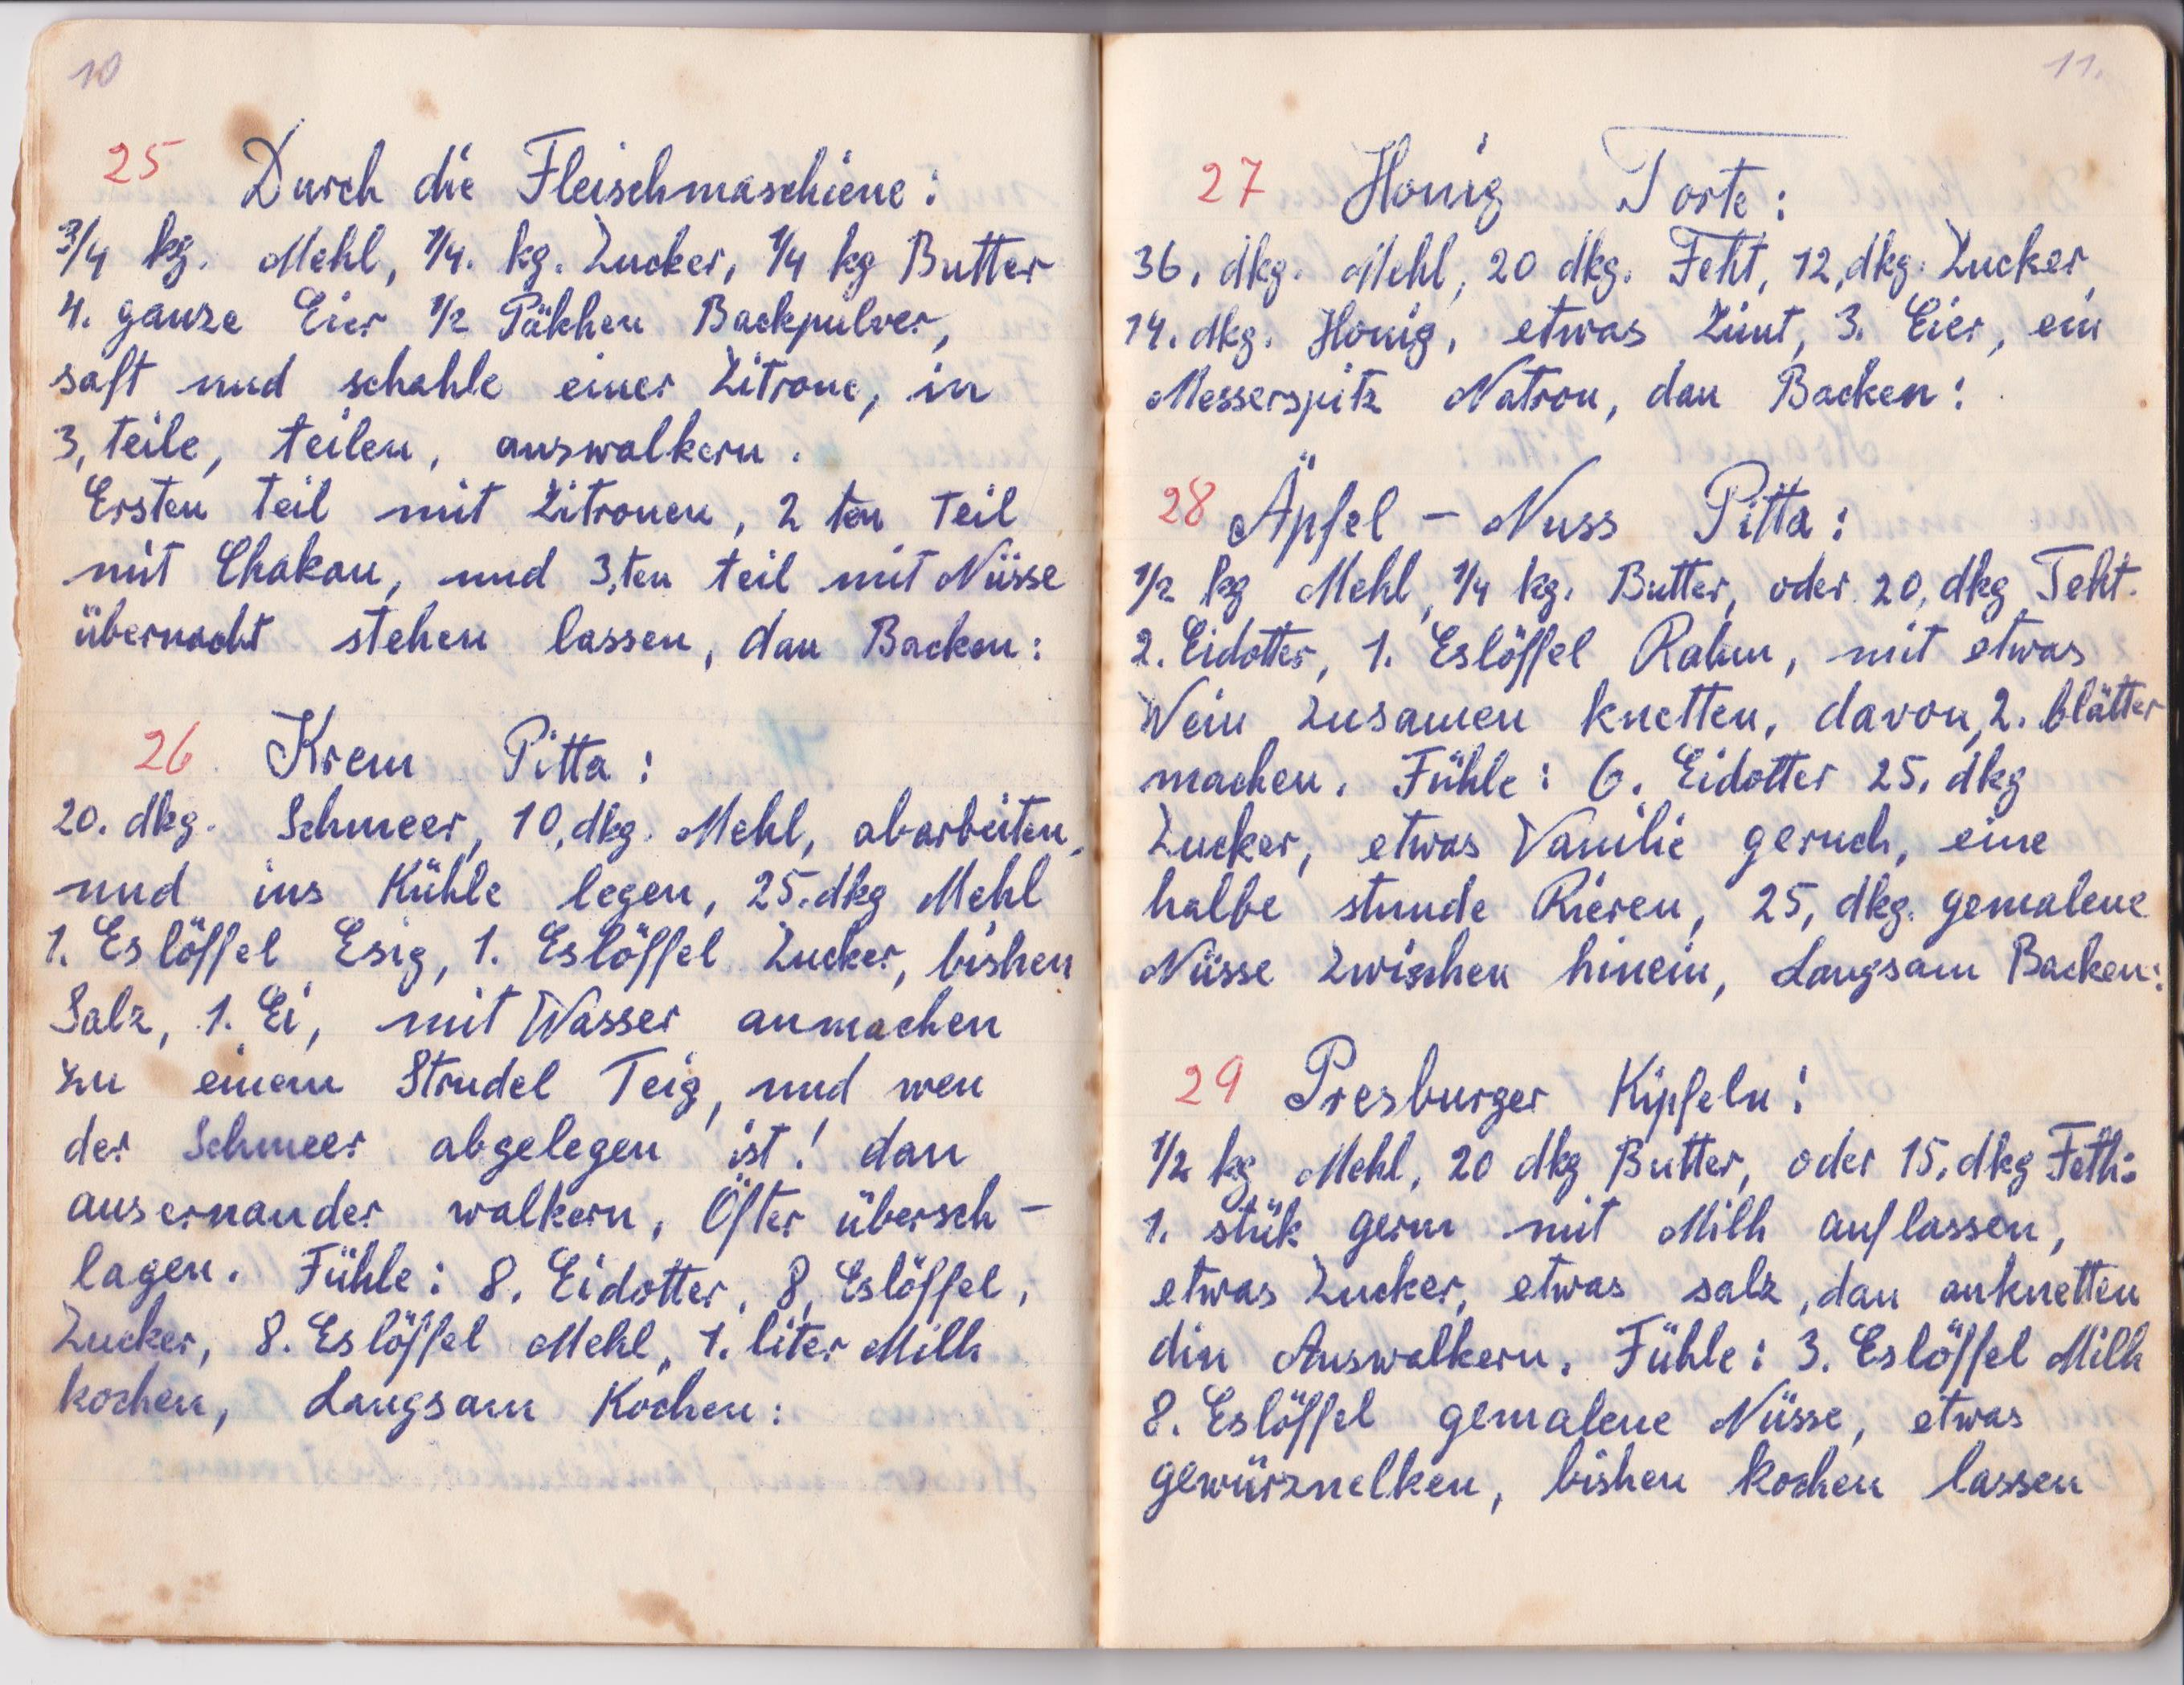 10
25 Durch die Fleischmaschiene:
3/4 kg. Mehl, 1/4. kg. Zucker, 1/4 kg Butter
4. ganze Eier 1/2 Päkhen Backpulver,
saft und schahle einer Zitrone, in
3, teile, teilen, auswalkern.
Ersten teil mit Zitronen, 2 ten Teil
mit Chakau, und 3,ten teil mit Nüsse
übernacht stehen lassen, dan Backen:
26. Krem Pitta:
20. dkg. Schmeer, 10, dkg. Mehl, abarbeiten,
und ins Kühle legen, 25. dkg Mehl
1. Eslöffel Esig, 1. Eslöffel Zucker, bishen
Salz, 1. Ei, mit Wasser anmachen
zu einem Strudel Teig, und wen
der Schmeer abgelegen ist! dan
ausernander walkern, Öfter übersch-
lagen. Fühle: 8. Eidotter, 8, Eslöffel,
Zucker, 8. Eslöffel Mehl, 1. liter Milh
kochen, Langsam Kochen:
11.
27 Honig Torte:
36, dkg. Mehl, 20 dkg. Feht, 12, dkg. Zucker,
14. dkg. Honig, etwas Zimt, 3. Eier, ein
Messerspitz Natron, dan Backen:
28 Äpfel - Nuss Pitta:
1/2 kg Mehl, 1/4 kg. Butter, oder 20, dkg Feht.
2. Eidotter, 1. Eslöffel Rahm, mit etwas
Wein zusamen knetten, davon, 2. blätter
machen. Fühle: 6. Eidotter 25, dkg
Zucker, etwas Vanilie geruch, eine
halbe stunde Rieren, 25, dkg. gemalene
Nüsse zwischen hinein, Langsam Backen:
29 Presburger Kipfeln:
1/2 kg Mehl, 20 dkg Butter, oder 15, dkg Feth:
1. stük germ mit Milh auflassen,
etwas Zucker, etwas salz, dan anknetten
din Auswalkern. Fühle: 3. Eslöffel Milh
8. Eslöffel gemalene Nüsse, etwas
gewürznelken, bishen kochen lassen